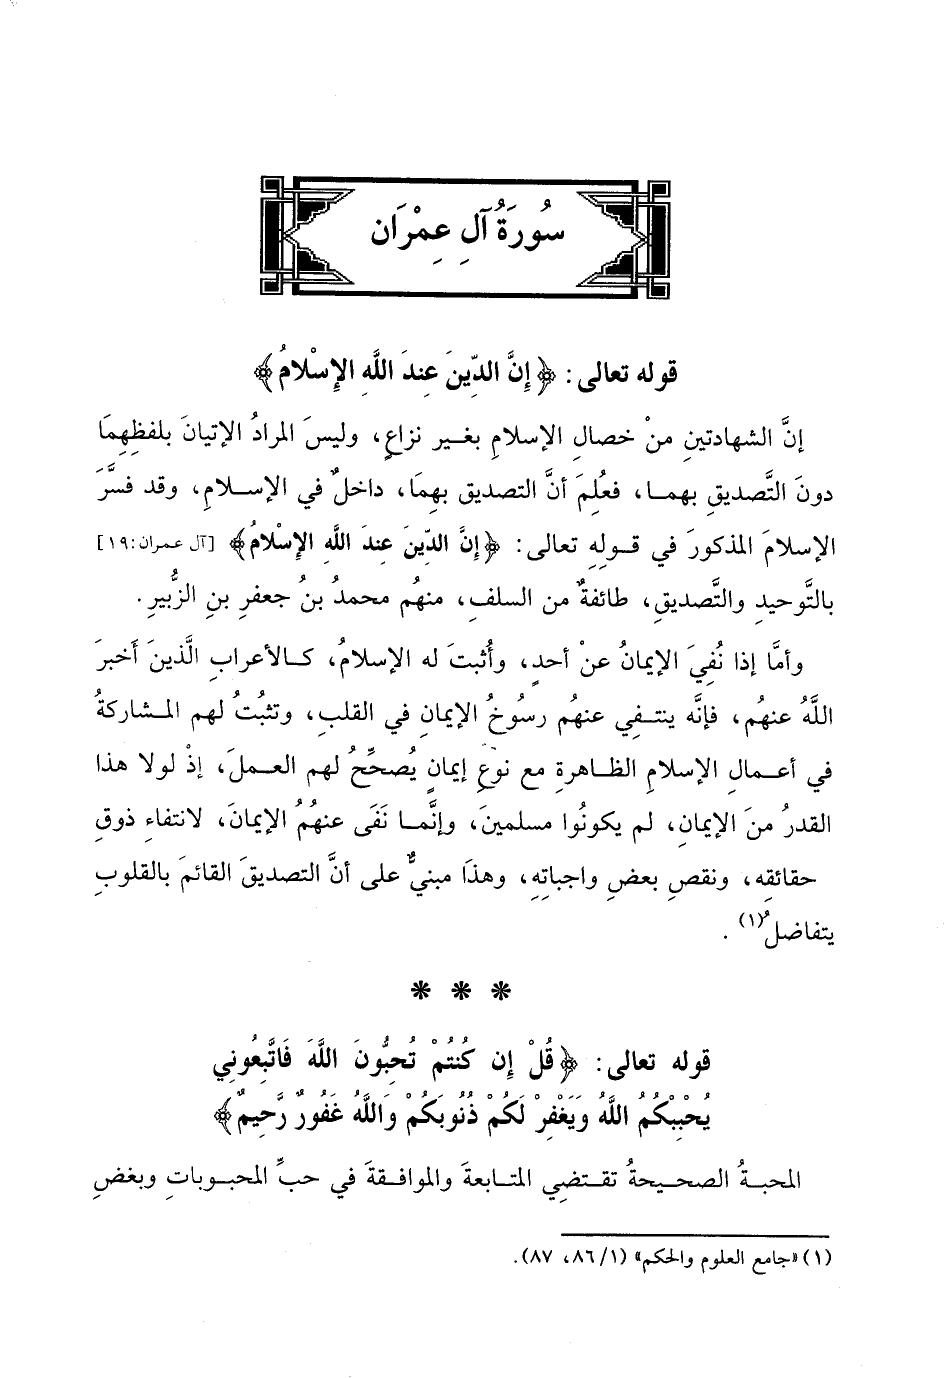 سُورَةُ آلِ عِمْرَان
قوله تعالى: ﴿إِنَّ الدِّينَ عِندَ اللَّهِ الإِسْلامُ﴾
إنَّ الشهادتينِ منْ خصالِ الإسلامِ بغيرِ نزاعٍ، وليسَ المرادُ الإتيانَ بلفظِهِمَا
دونَ التَّصديقِ بهما، فعُلِمَ أنَّ التصديق بهِمَا، داخلٌ في الإسلامِ، وقد فسَّرَ
الإسلامَ المذكورَ في قولِهِ تعالى: ﴿إِنَّ الدِّينَ عِندَ اللَّهِ الإِسْلامُ﴾ [آل عمران: ١٩]
بالتَّوحيدِ والتَّصديقِ، طائفةٌ من السلفِ، منهُم محمدُ بنُ جعفرِ بنِ الزُّبيرِ.
وأمَّا إذا نُفِيَ الإيمانُ عنْ أحدٍ، وأُثبتَ له الإسلامُ، كالأعرابِ الَّذينَ أَخبرَ
اللَّهُ عنهُم، فإنَّه ينتفِي عنهُم رسُوخُ الإيمانِ في القلبِ، وتثبُتُ لهم المشاركةُ
في أعمالِ الإسلامِ الظاهرةِ مع نوعِ إيمانٍ يُصحِّحُ لهم العملَ، إذْ لولا هذا
القدرُ منَ الإيمانِ، لم يكونُوا مسلمينَ، وإنَّما نَفَى عنهُمُ الإيمانَ، لانتفاءِ ذوقِ
حقائقِه، ونقصِ بعضِ واجباتِهِ، وهذَا مبنيٌّ على أنَّ التصديقَ القائمَ بالقلوبِ
يتفاضلُ(١).
* * *
قوله تعالى: ﴿قُلْ إِن كُنتُمْ تُحِبُّونَ اللَّهَ فَاتَّبِعُونِي
يُحْبِبْكُمُ اللَّهُ وَيَغْفِرْ لَكُمْ ذُنُوبَكُمْ وَاللَّهُ غَفُورٌ رَّحِيمٌ﴾
المحبةُ الصحيحةُ تقتضِي المتابعةَ والموافقةَ في حبِّ المحبوباتِ وبغضِ
(١) «جامع العلوم والحكم» (١/ ٨٦، ٨٧).